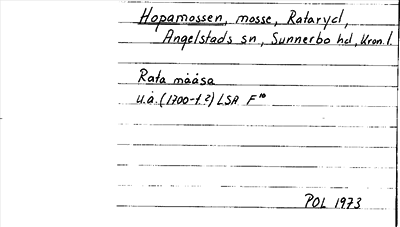 Hopamossen, mosse, Rataryd,
Angelstads sn, Sunnerbo hd, Kron. l.
Rata måâsa
u.å. (1700-t.?) LSA F¹⁰
POL 1973